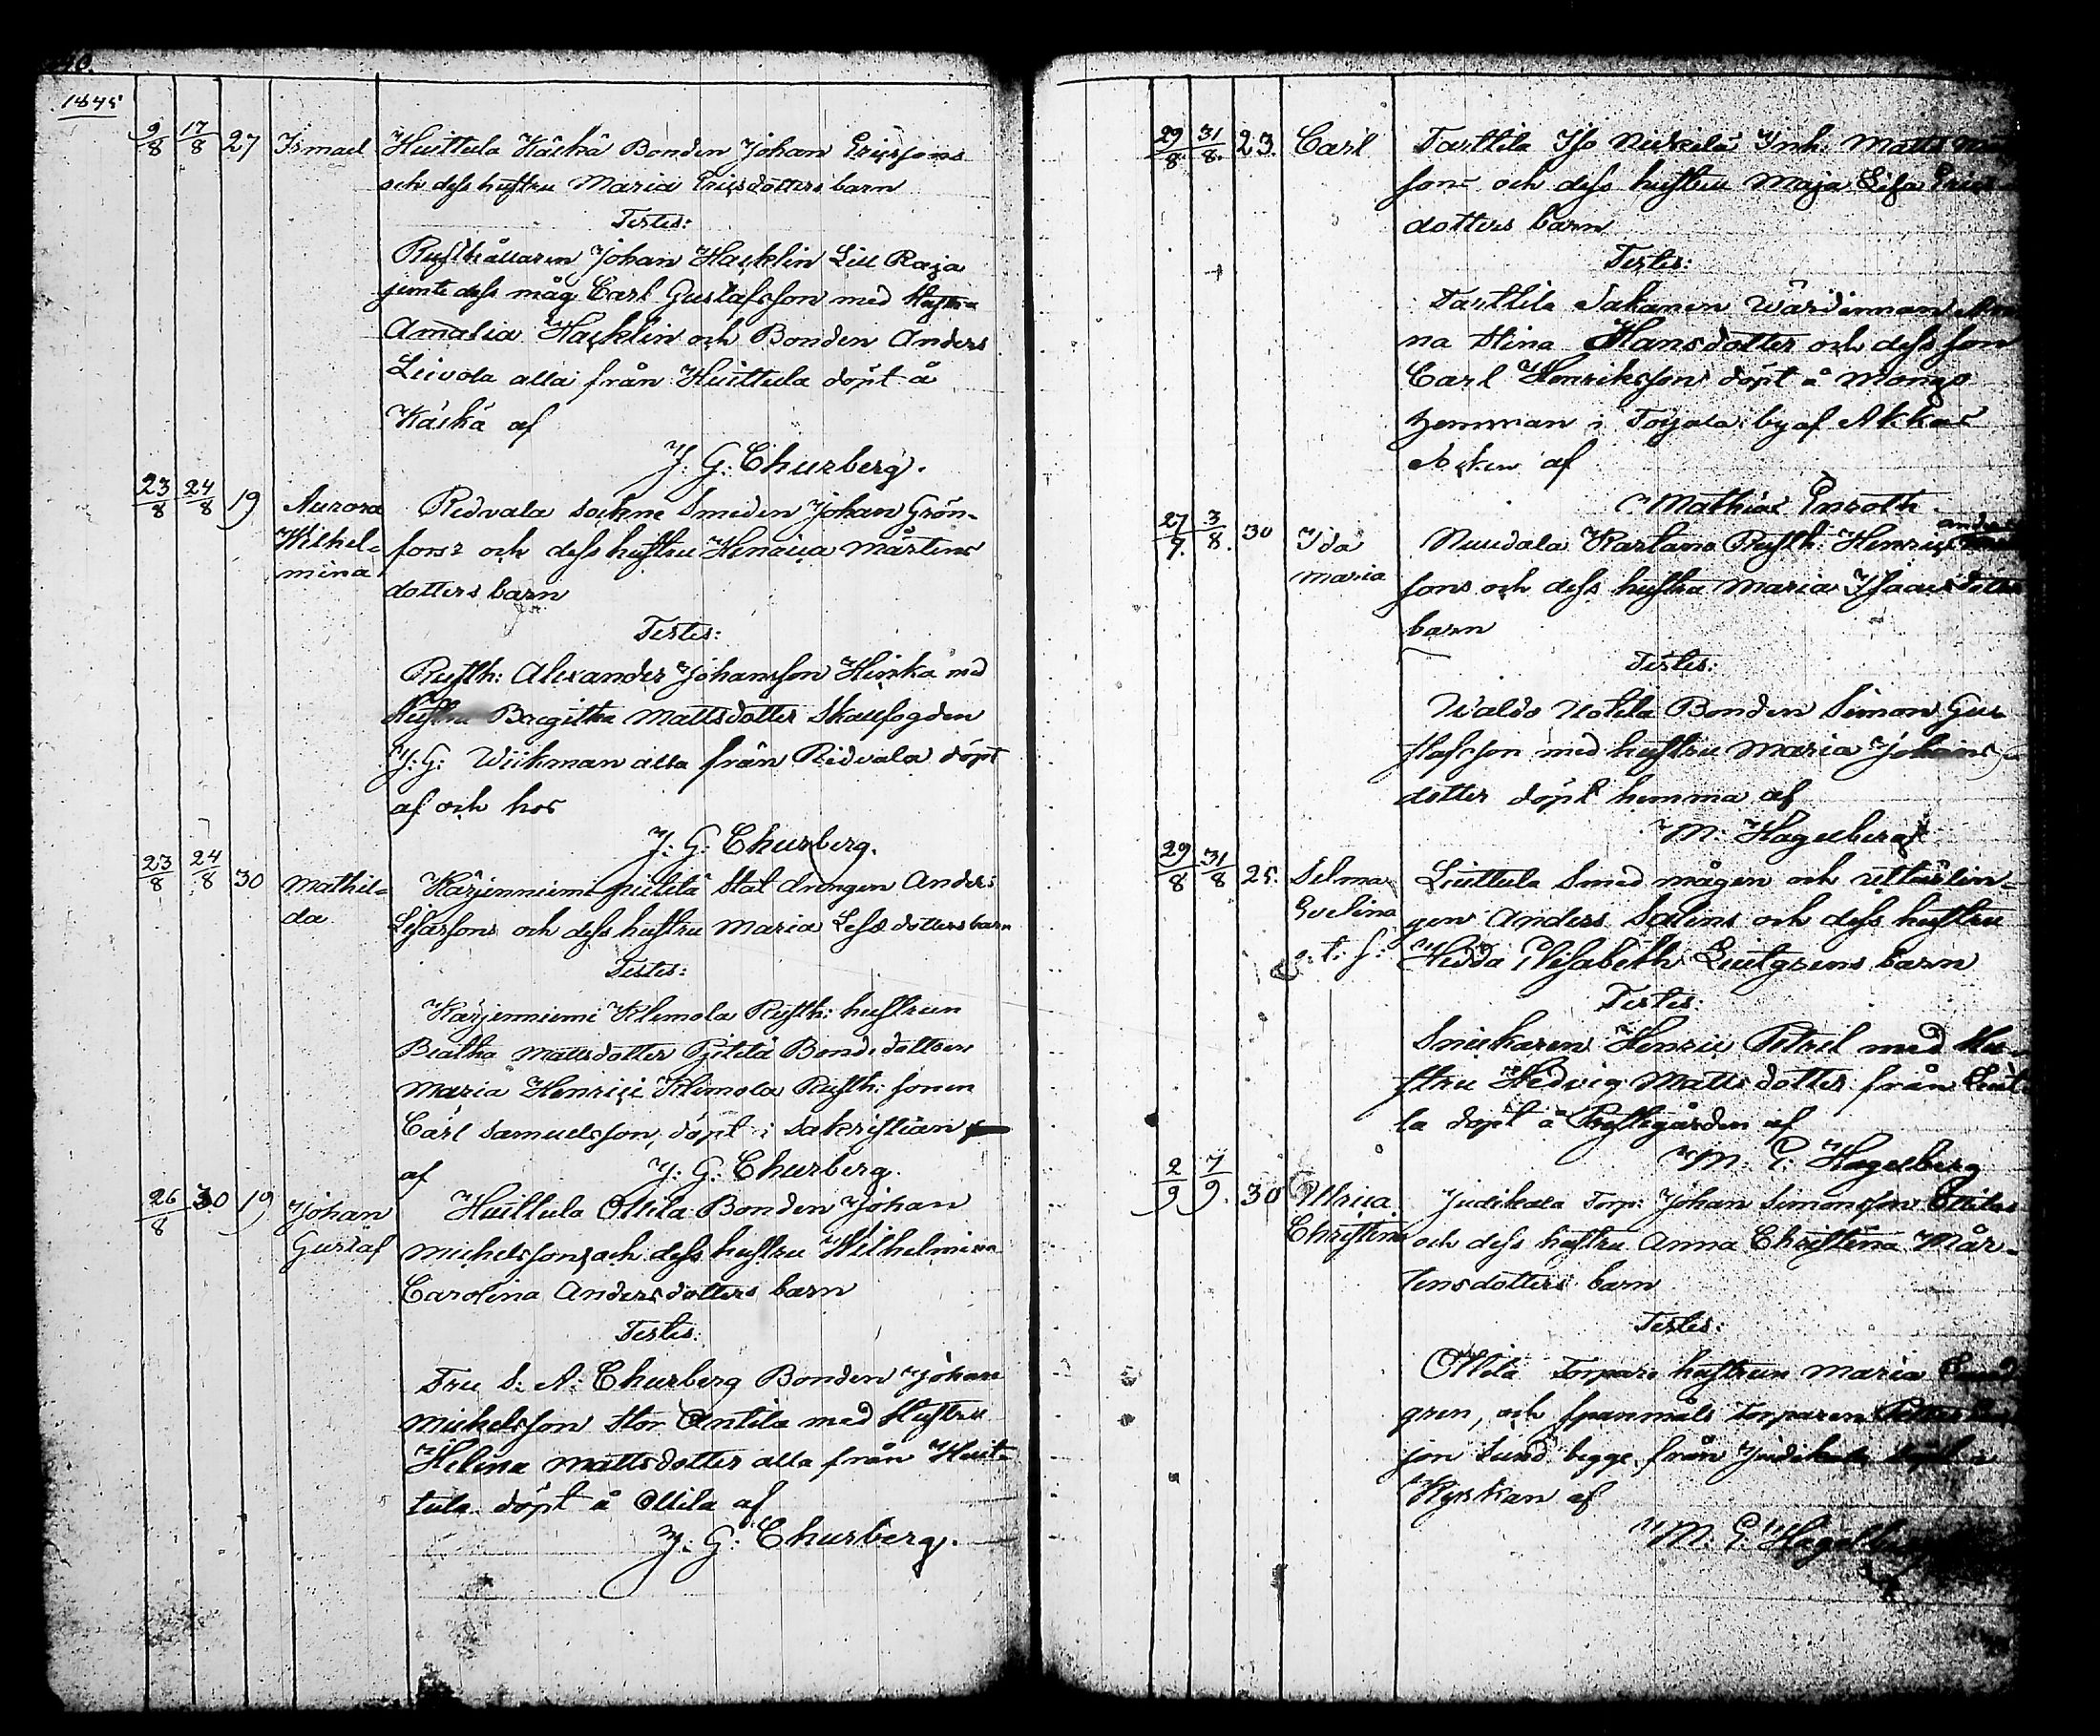 1845
9/8 17/8 27 Ismael Huittula Käskä Bonden Johan Ericssons
och dess hustru Maria Ericsdotters barn
Testes:
Rusthållaren Johan Hacklin Lill Raja
jemte dess måg Carl Gustafsson med Hustru
Amalia Hacklin och Bonden Anders
Liuvola alla från Huittula döpt å
Käskä af
J. G. Churberg.
23/8 24/8 19 Aurora Ridvala sockne Smeden Johan Grön-
Wilhel- fors och dess hustru Henrica Mårtens
mina dotters barn
Testes:
Rusth: Alexander Johansson Heinka med
Hustru Bregitha Mattsdotter Skaufogden
J: G: Wiikman alla från Ridvala döpt
af och hos
J. G. Churberg.
23/8 24/8 30 Mathil- Kärjenniemi Pietilä Stat drängen Anders
da Lisassons och dess hustru Maria dotters barn
Testes:
Kärjenniemi Klemola Rusth: hustrun
Beatha Mattsdotter Pietilä Bondedottren
Maria Henrici Klemola Rusth: sonen
Carl Samuelsson, döpt i Sakristian
af J: G: Churberg.
26/8 30 19 Johan Huittula Ollila Bonden Johan
Gustaf Michelssons och dess hustru Wilhelmina
Carolina Andersdotters barn
Testes:
Fru S: A: Churberg Bonden Johan
Michelsson Stor Antila med Hustru
Helena Mattsdotter alla från Huit-
tula döpt å Ollila af
J. G. Churberg.
29/8. 31/8. 23. Carl Tarttila Iso Inh: Matts
sons och dess hustru Maja Lisa Erics
dotters barn
Testes:
Tarttila Sakanen Wärdinnan An
na Stina Hansdotter och dess son
Carl Henriksson döpt å
hemman i Toijala by af Akkas
Socken af
Mathias Enroth
27/7. 3/8. 30 Ida Nuudala Karlano Rusth: Henric anders
Maria sons och dess hustru Maria Isaacsdotters
barn
Testes:
Waldo Uotila Bonden Simon Gu-
stafsson med hustru Maria Johans-
dotter döpt hemma af
M: Hagelberg
29/8 31/8 25. Selma Liuttula Smed mågen och uttärlin-
Evelina gen Anders Salins och dess hustru
o: t: f: Hedda Elisabeth Lintgrens barn
Testes:
Snickaren Henric Petrel med Hu-
stru Hedvig Mattsdotter från Liut
la döpt å Prestegården af
M. E: Hagelberg
2/9 7/9. 30 Ulrica Judikala Torp: Johan Simonsson Ollilas
Christina och dess hustru Anna Christina Mår-
tensdotters barn
Testes:
Ollila Torpare hustrun Maria Sund
gren, och spanmåls Torparen
son Sund begge från Judikala döpt i
Kyrkan af
M. E: Hagelberg